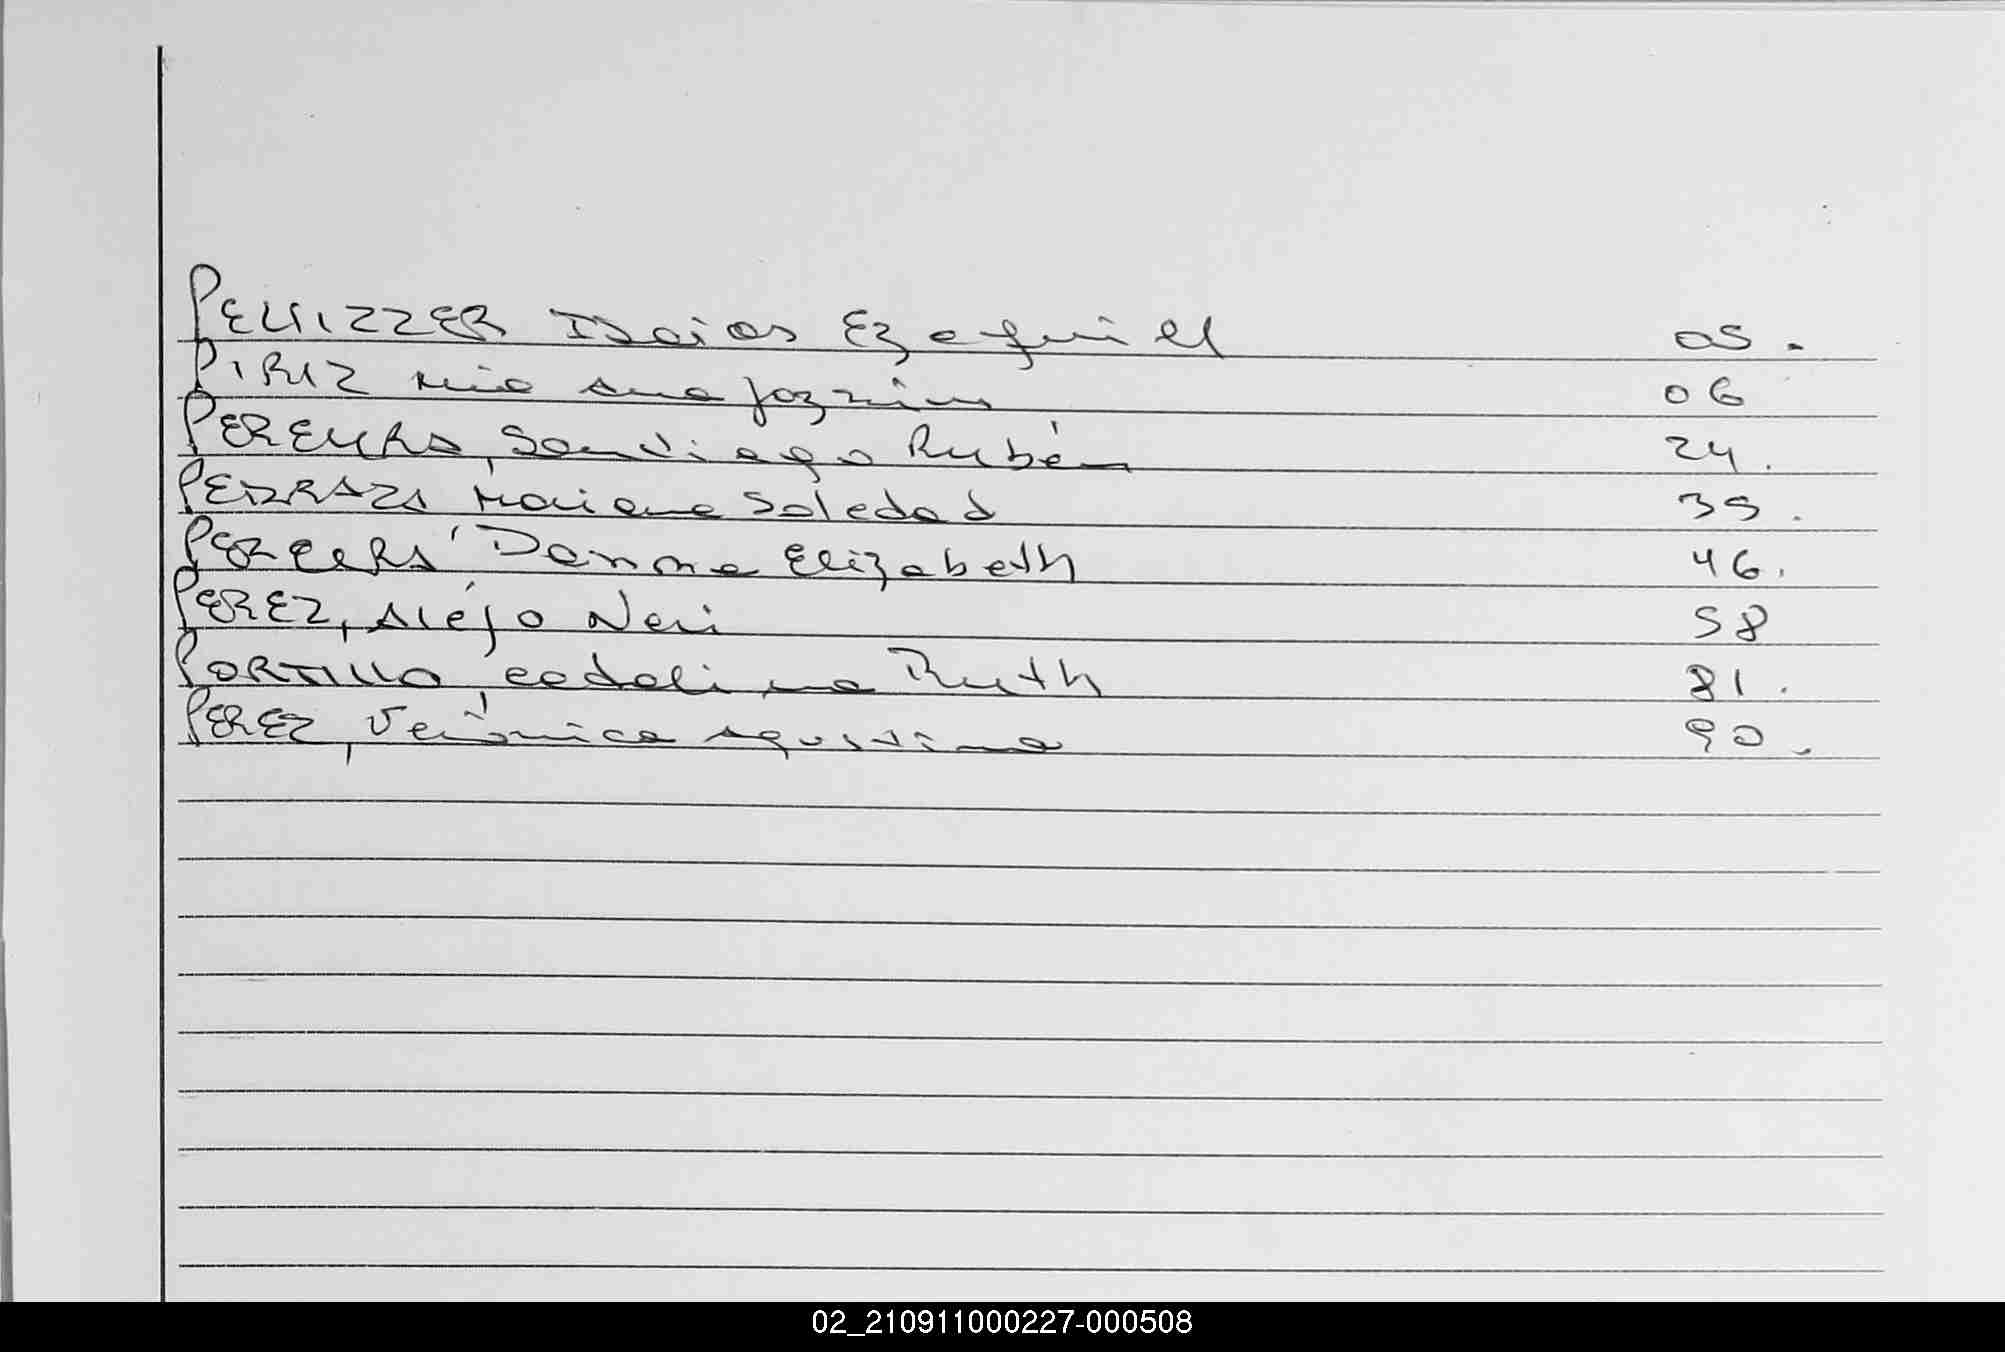 PELLIZZER Isaias Ezequiel 05.
PIRIZ Mia Ana Jazmin 06
PEREYRA, Santiago Rubén 24.
PEDRAZA Mariana Soledad 35.
PEREYRA Elizabeth 46.
PEREZ, Alejo Neri 58
PORTILLO, Catalina Ruth 81.
PEREZ, Verónica Agustina 90.
02_210911000227-000508